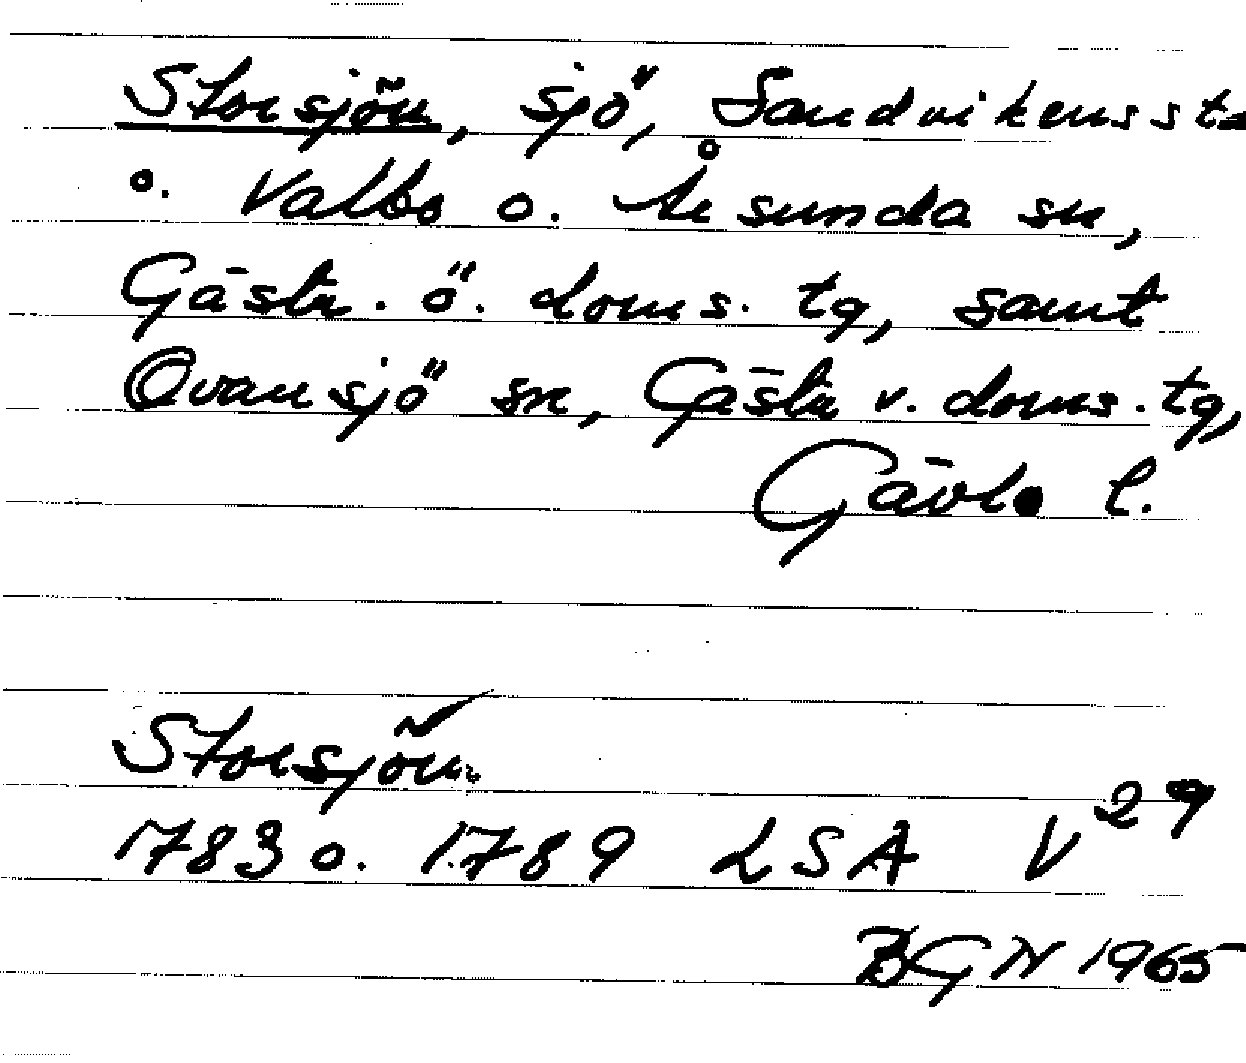 Storsjön, sjö, Sandvikens st
o. Valbo o. Årsunda sn,
Gästr. ö. doms. tg, samt
Ovansjö sn, Gästr v. doms. tg,
Gävle l.
Storsjön
1783 o. 1789 LSA V 29
BGN 1965